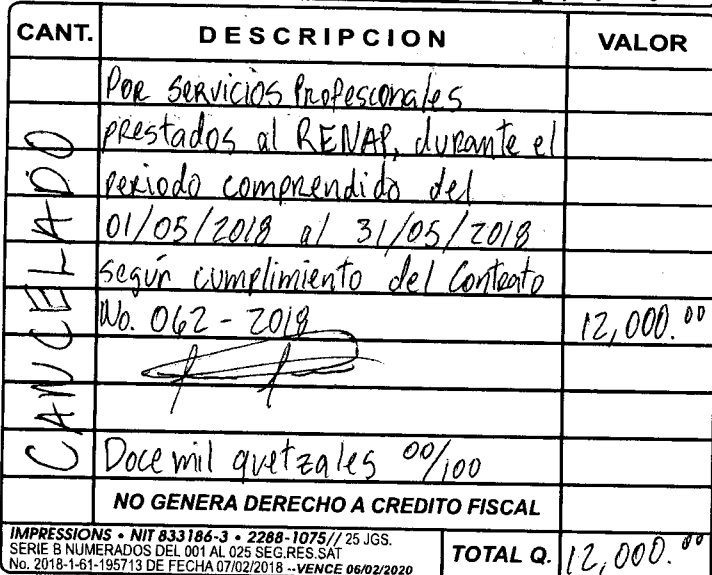 CANT. DESCRIPCION VALOR
Por servicios Profesionales
prestados al RENAP, durante el
periodo comprendido del
01/05/2018 al 31/05/2018
según cumplimiento del Contrato
No. 062-2018 12,000.00
CANCELADO
Doce mil quetzales 00/100
NO GENERA DERECHO A CREDITO FISCAL
IMPRESSIONS • NIT 833186-3 • 2288-1075// 25 JGS.
SERIE B NUMERADOS DEL 001 AL 025 SEG.RES.SAT
No. 2018-1-61-195713 DE FECHA 07/02/2018 --VENCE 06/02/2020
TOTAL Q. 12,000.00